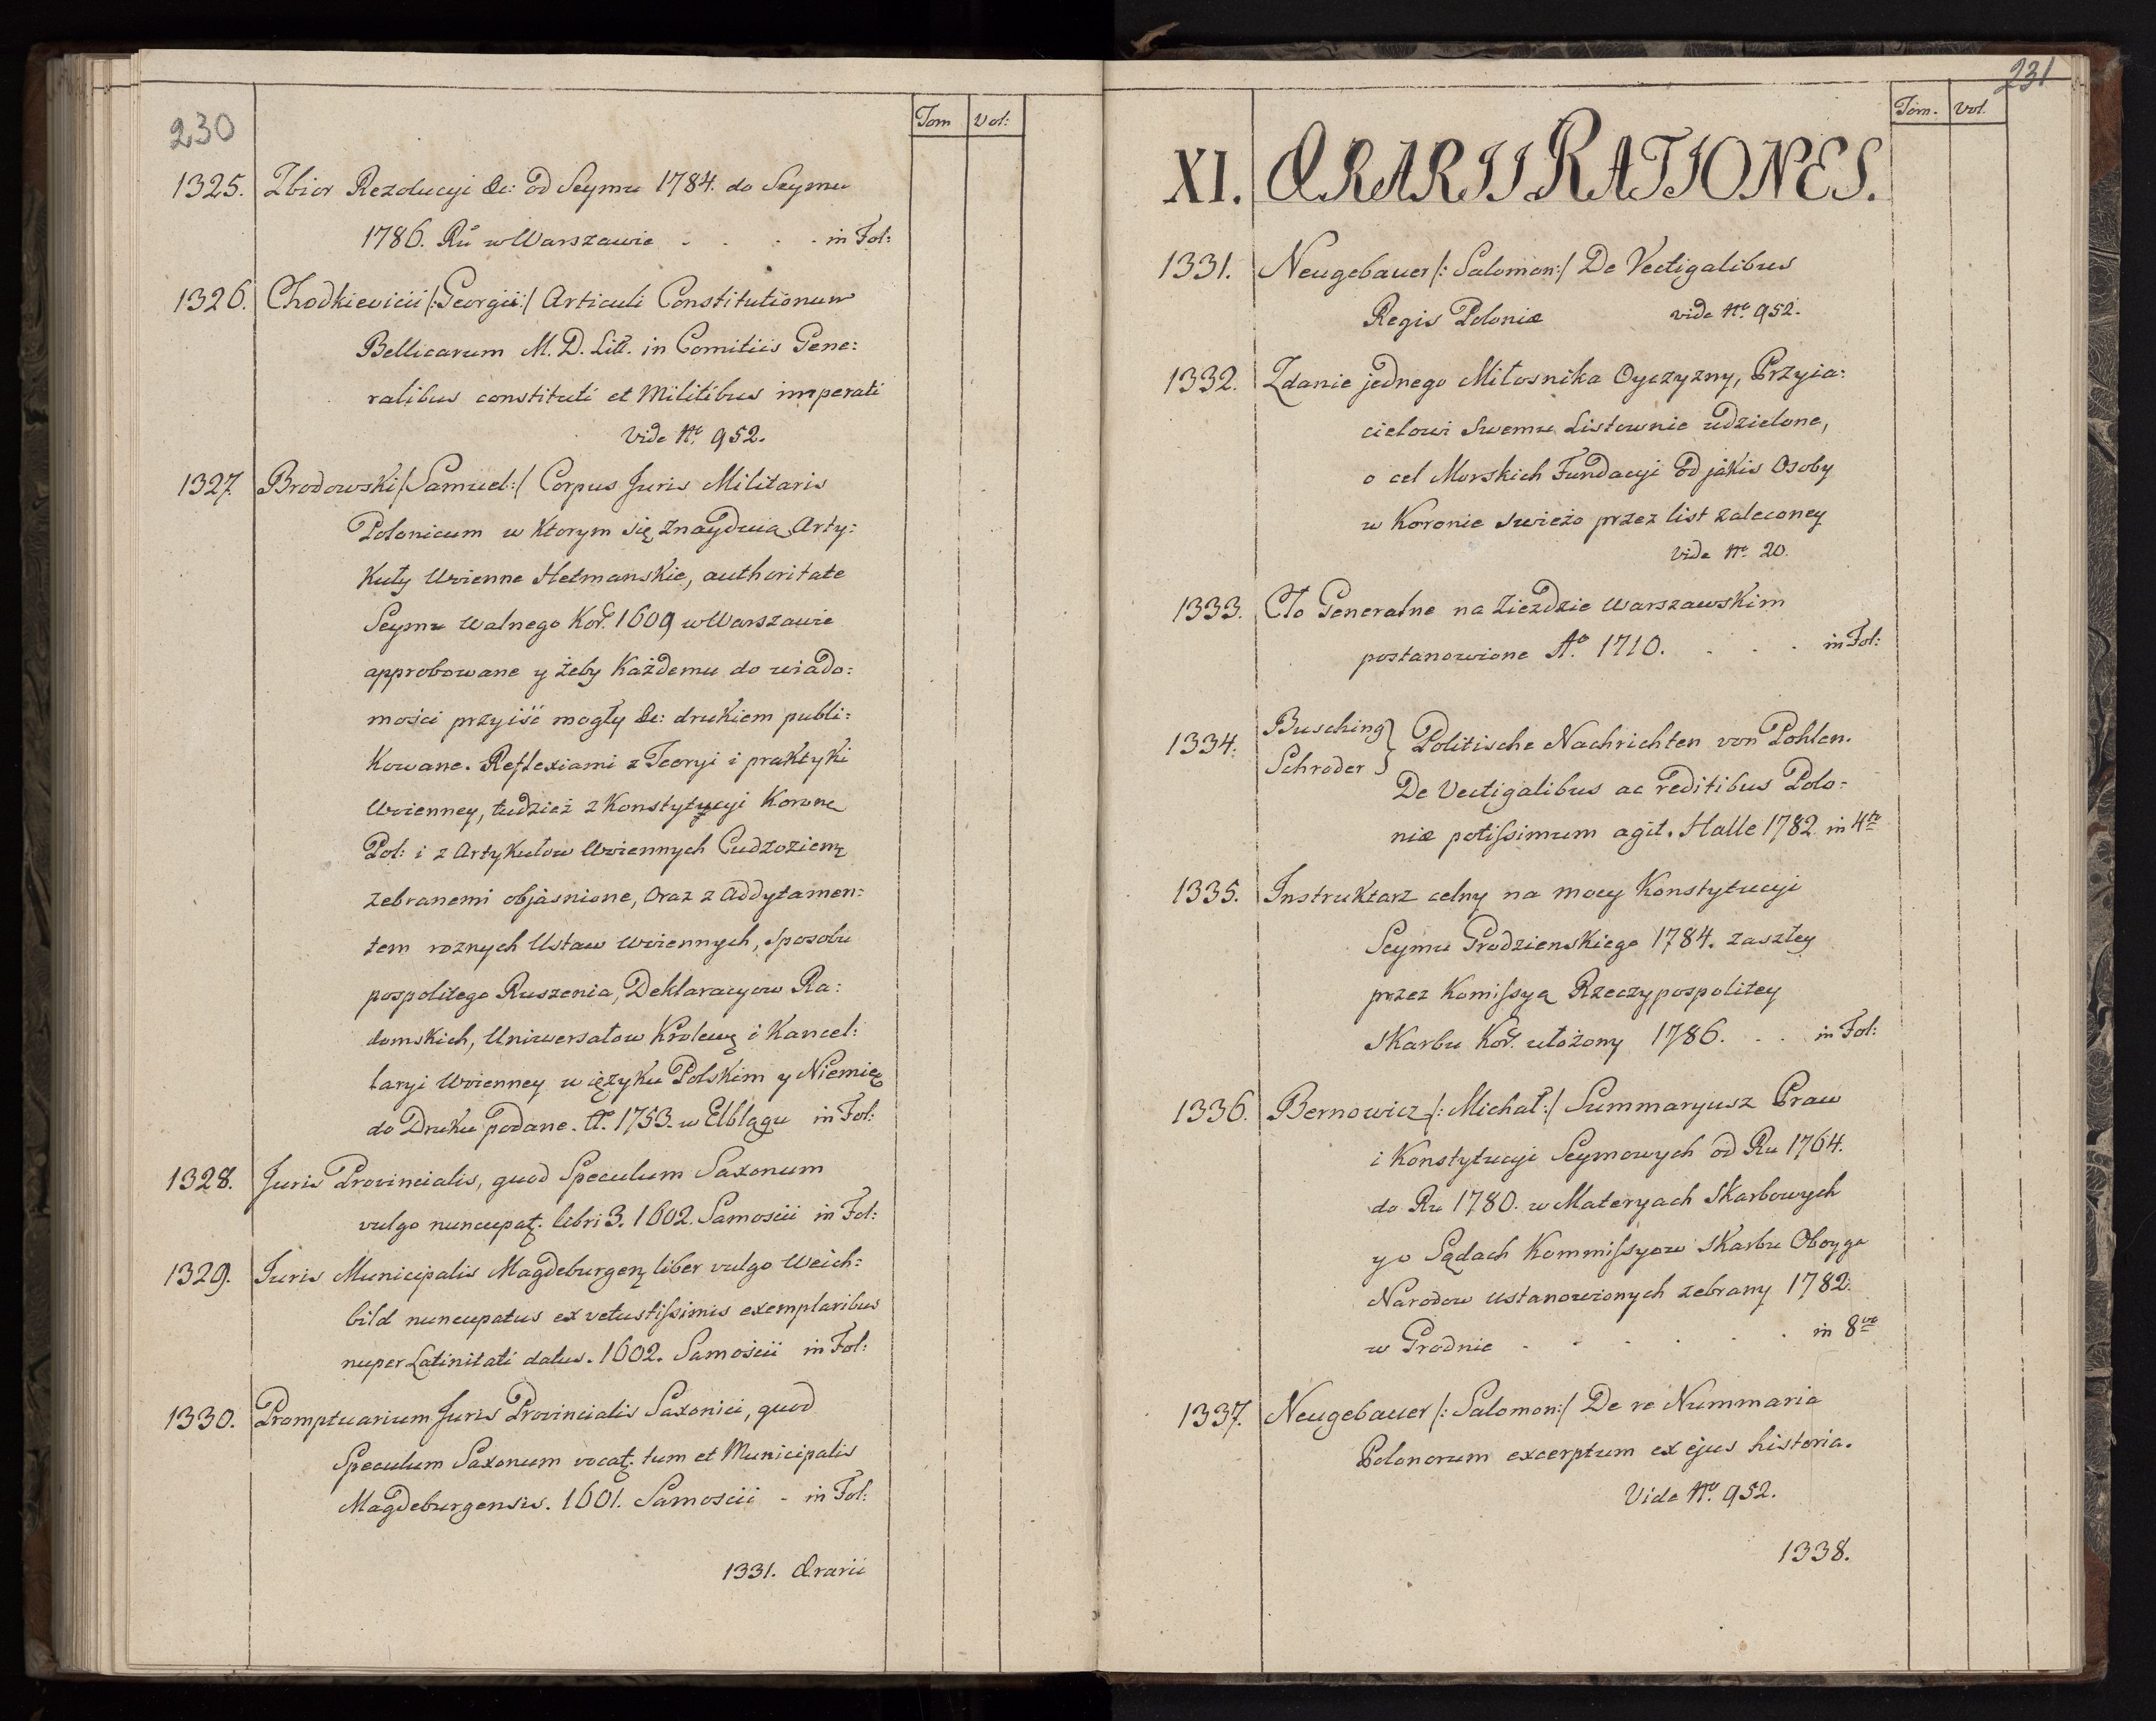 230
Tom Vol:
1325. Zbior Rezolucyi &c: od Seymu 1784. do Seymu
1786. Ru w Warszawie . . . . in Fol:
1326. Chodkievicii /:Georgii:/ Articuli Constitutionum
Bellicarum M. D. Litt. in Comitiis Gene:
ralibus constituti et Militibus imperati
vide No. 952.
1327. Brodowski /:Samuel:/ Corpus Juris Militaris
Polonicum w Ktorym się znayduią Arty:
Kuły Woienne Hetmanskie, authoritate
Seymu Walnego Kor. 1609 w Warszawie
approbowane y żeby Każdemu do wiado:
mości przyiść mogły &c: drukiem publi:
Kowane. Reflexiami z Teoryi i praktyki
Woienney, tudzież z Konstytucyi Koronę
Pol: i z Artykułow Woiennych Cudzoziemę
zebranemi objaśnione, Oraz z Addytamen:
tem roznych Ustaw Woiennych, sposobu
pospolitego Ruszenia, Deklaracyow Ra:
domskich, Uniwersałow Krolewę i Kancel:
laryi Woienney w ięzyku Polskim y Niemię
do Druku podane. A. 1753. w Elblągu in Fol:
1328. Juris Provincialis, quod Speculum Saxonum
vulgo nuncupatę. libri 3. 1602. Samoscii in Fol:
1329. Juris Municipalis Magdeburgenę liber vulgo Weich:
bild nuncupatus ex vetustissimis exemplaribus
nuper Latinitati datus. 1602. Samoscii in Fol:
1330. Promptuarium Juris Provincialis Saxonici, quod
Speculum Saxonum vocatę. tum et Municipalis
Magdeburgensis. 1601. Samoscii - in Fol:
1331. Ærarii
231
Tom. Vol.
XI. ÆRARII RATIONES.
1331. Neugebauer /: Salomon:/ De Vectigalibus
Regis Poloniæ vide No. 952.
1332. Zdanie jednego Miłosnika Oyczyzny, Przyia:
cielowi Swemu Listownie udzielone,
o cel Morskich Fundacyi od jakis Osoby
w Koronie swieżo przez list zaleconey
vide No. 20.
1333. Cło Generalne na Zieżdzie Warszawskim
postanowione Ao. 1710. . . . in Fol:
1334. Busching
Schroder } Politische Nachrichten von Pohlen.
De Vectigalibus ac reditibus Polo:
niæ potissimum agit. Halle 1782 in 4to
1335. Instruktarz celny na mocy Konstytucyi
Seymu Grodzienskiego 1784. zaszłey
przez Komissyą Rzeczypospolitey
Skarbu Kor. ułożony 1786. . . in Fol:
1336. Bernowicz /: Michał:/ Summaryusz Praw
i Konstytucyi Seymowych od Ru 1764.
do Ru 1780. w Materyach Skarbowych
y o Sądach Kommissyow Skarbu Oboyga
Narodow ustanowionych zebrany 1782.
w Grodnie . . . . . . in 8vo
1337. Neugebauer /: Salomon:/ De re Nummaria
Polonorum excerptum ex ejus historia.
Vide No. 952.
1338.